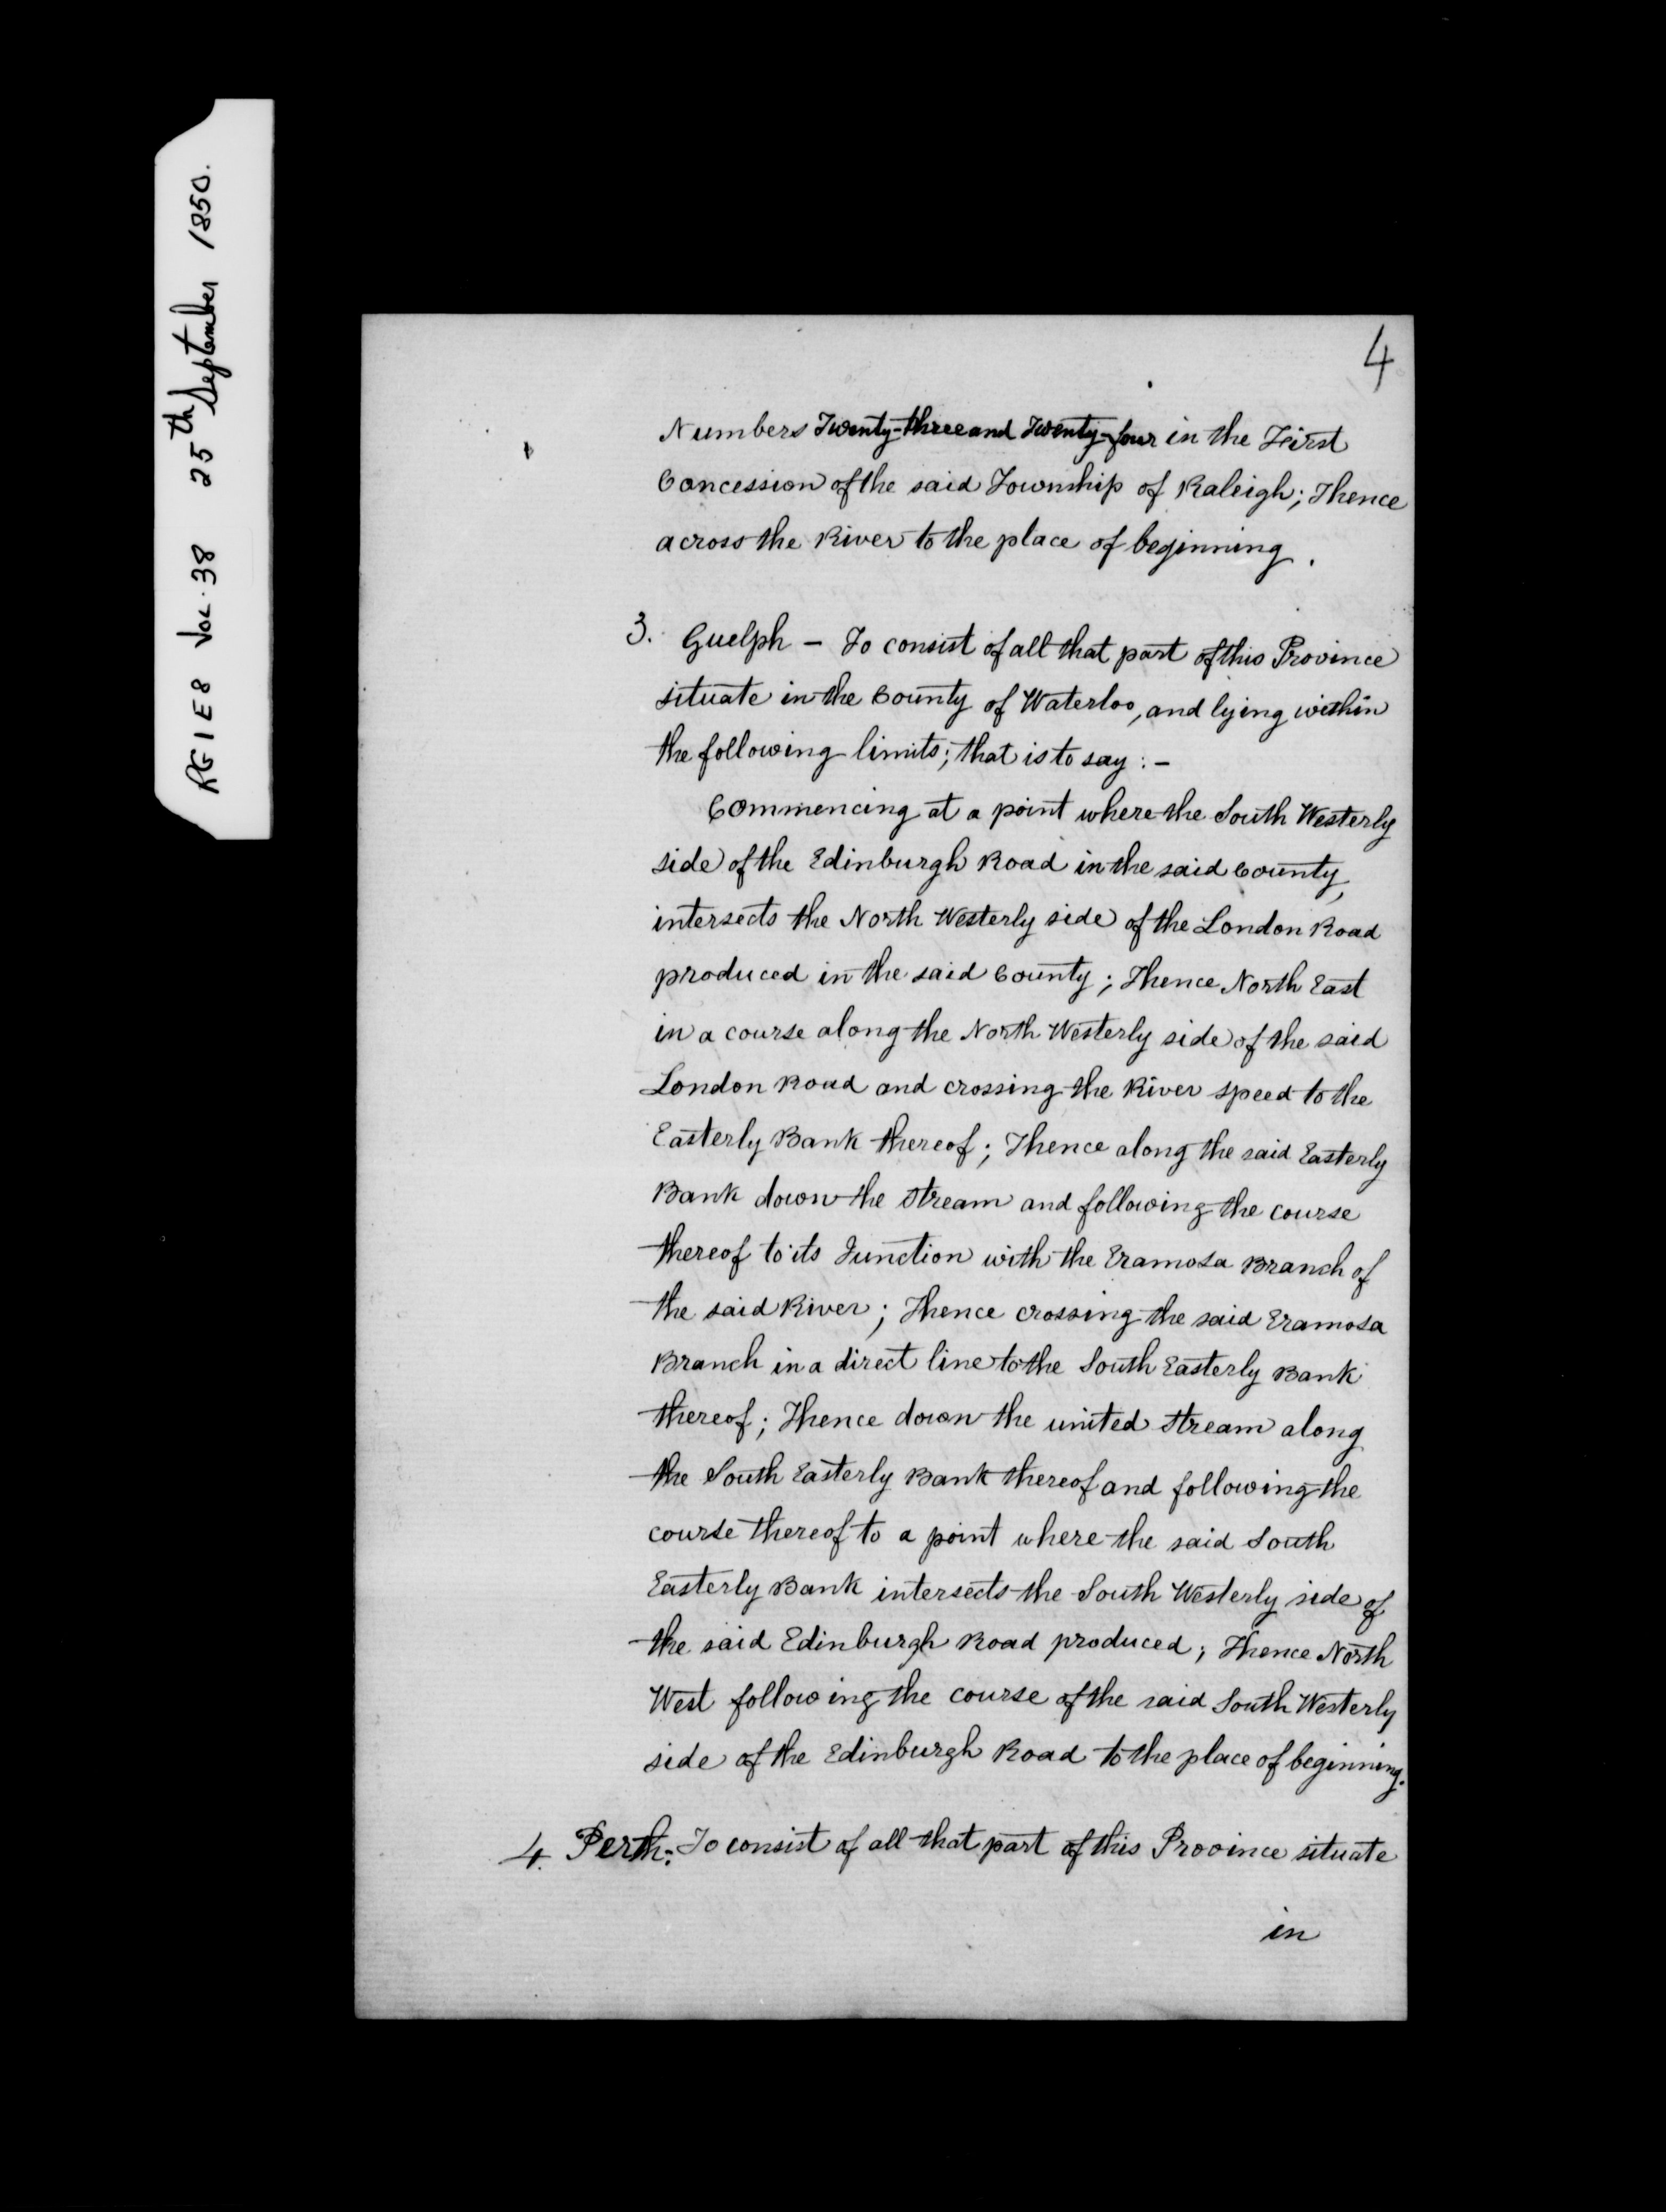 RG 1 E 8 VOL. 38 25th September 1850.
4
Numbers Twenty-three and Twenty-four in the First
Concession of the said Township of Raleigh; Thence
across the River to the place of beginning.
3. Guelph - To consist of all that part of this Province
situate in the County of Waterloo, and lying within
the following limits; that is to say: -
Commencing at a point where the South Westerly
side of the Edinburgh Road in the said County,
intersects the North Westerly side of the London Road
produced in the said County; Thence North East
in a course along the North Westerly side of the said
London Road and crossing the River Speed to the
Easterly Bank thereof; Thence along the said Easterly
Bank down the Stream and following the course
thereof to its Junction with the Eramosa Branch of
the said River; Thence crossing the said Eramosa
Branch in a direct line to the South Easterly Bank
thereof; Thence down the united Stream along
the South Easterly Bank thereof and following the
course thereof to a point where the said South
Easterly Bank intersects the South Westerly side of
the said Edinburgh Road produced; Thence North
West following the course of the said South Westerly
side of the Edinburgh Road to the place of beginning.
4. Perth: To consist of all that part of this Province situate
in